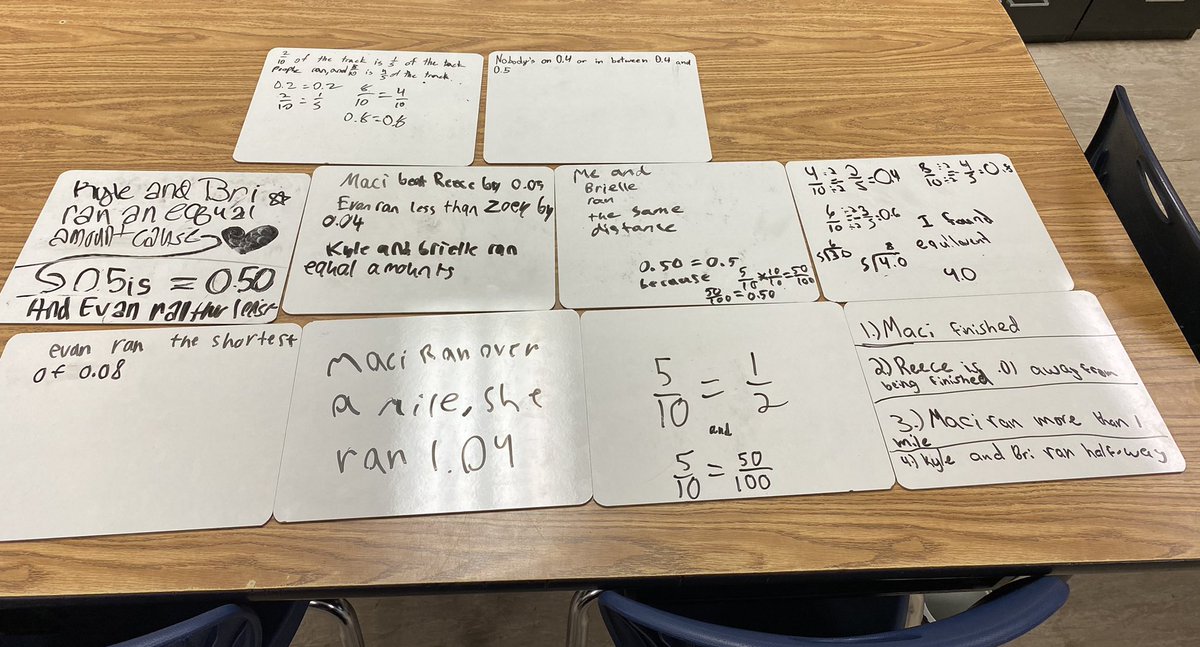 2/10 of the track is 1/5 of the track
People ran, and 8/10 is of the track.
0.2 = 0.2
2/10 = 1/5
0.8 = 0.8
Nobody's on 0.4 or in between 0.4 and
0.5
Kyle and Bri
ran an eqqual
amount cause
0.5 is = 0.50
And Evan ran the
Maci beat Reece by 0.05
Evan ran less than Zoey by
0.04
Kyle and brielle ran
equal amounts
Me and
Brielle
ran
the same
distance
0.50 = 0.5
because 5/10 × 10/10 = 50/100
50/100 = 0.50
4/10 ÷2 ÷2 2/5 = 0.4
8/10 ÷2 ÷2 4/5 = 0.8
6/10 ÷2 ÷2 3/5 = 0.6
I found
5)4.0
4.0
evan ran the shortest
of 0.08
Maci Ran over
a mile, she
ran 1.04
5/10 = 1/2
and
5/10 = 50/100
1.) Maci finished
2) Reece is .01 away from
being finished
3.) Maci ran more than 1
mile
4) Kyle and Bri ran half-way